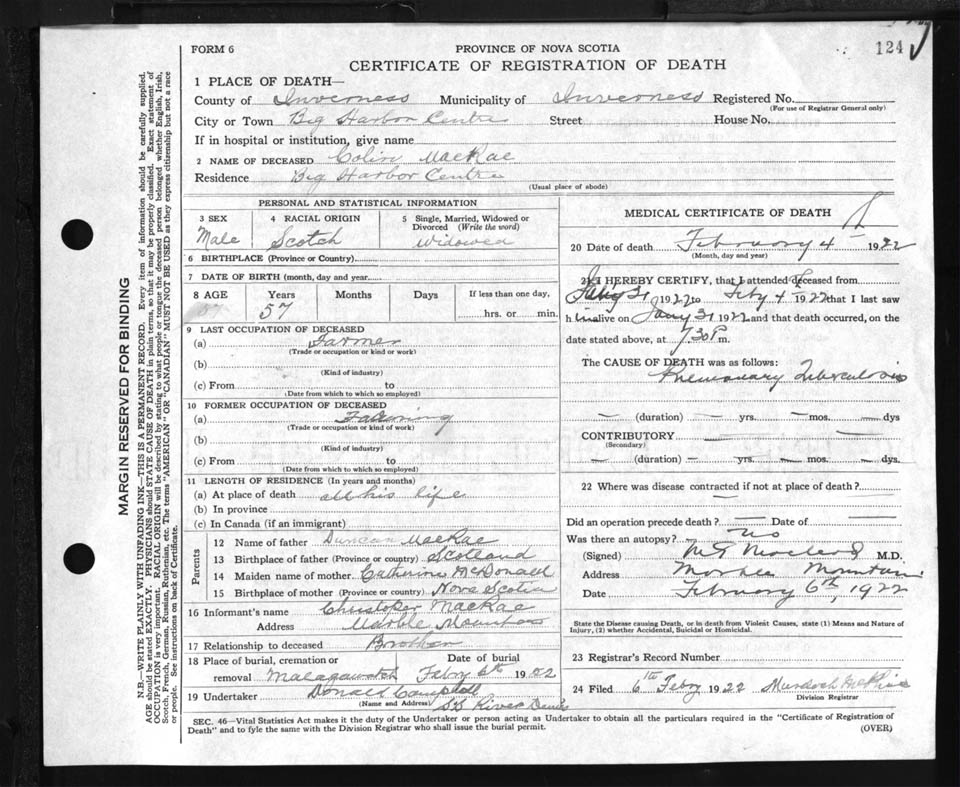 FORM 6
PROVINCE OF NOVA SCOTIA
124
CERTIFICATE OF REGISTRATION OF DEATH
1 PLACE OF DEATH—
County of Inverness Municipality of Inverness Registered No.
(For use of Registrar General only)
City or Town Big Harbor Centre Street House No.
If in hospital or institution, give name
2 NAME OF DECEASED Colin MacRae
Residence Big Harbor Centre
(Usual place of abode)
PERSONAL AND STATISTICAL INFORMATION
3 SEX 4 RACIAL ORIGIN 5 Single, Married, Widowed or
Divorced (Write the word)
Male Scotch Widowed
6 BIRTHPLACE (Province or Country)
7 DATE OF BIRTH (month, day and year)
8 AGE Years Months Days If less than one day,
57 57 hrs. or min.
9 LAST OCCUPATION OF DECEASED
(a) Farmer
(Trade or occupation or kind of work)
(b)
(Kind of industry)
(c) From to
(Date from which to which so employed)
10 FORMER OCCUPATION OF DECEASED
(a)
(Trade or occupation or kind of work)
(b)
(Kind of industry)
(c) From to
(Date from which to which so employed)
11 LENGTH OF RESIDENCE (In years and months)
(a) At place of death all his life
(b) In province
(c) In Canada (if an immigrant)
Parents
12 Name of father Duncan MacRae
13 Birthplace of father (Province or country) Scotland
14 Maiden name of mother Catherine McDonald
15 Birthplace of mother (Province or country) Nova Scotia
16 Informant's name Christoper MacRae
Address Marble Mountain
17 Relationship to deceased Brother
18 Place of burial, cremation or Date of burial
removal Malagawatch Febry 6th 1922
19 Undertaker Donald Campbell
(Name and Address) SS River Denis
MEDICAL CERTIFICATE OF DEATH
20 Date of death February 4 1922
(Month, day and year)
21 I HEREBY CERTIFY, that I attended deceased from
31 1922 to Feby 4 1922 that I last saw
h im alive on Jany 31 1922 and that death occurred, on the
date stated above, at 7.30 P m.
The CAUSE OF DEATH was as follows:
Pulmonary Tuberculosis
— (duration) — yrs. — mos. — dys
CONTRIBUTORY — —
(Secondary)
— (duration) — yrs. — mos. — dys.
22 Where was disease contracted if not at place of death?
—
Did an operation precede death? — Date of —
Was there an autopsy? No
(Signed) M.D.
Address Marble Mountain
Date February 6th, 1922
State the Disease causing Death, or in death from Violent Causes, state (1) Means and Nature of
Injury, (2) whether Accidental, Suicidal or Homicidal.
23 Registrar's Record Number
24 Filed 6th Febry 1922 Murdoch
Division Registrar
SEC. 46—Vital Statistics Act makes it the duty of the Undertaker or person acting as Undertaker to obtain all the particulars required in the "Certificate of Registration of
Death" and to fyle the same with the Division Registrar who shall issue the burial permit.
(OVER)
MARGIN RESERVED FOR BINDING
N.B.—WRITE PLAINLY WITH UNFADING INK—THIS IS A PERMANENT RECORD. Every item of information should be carefully supplied.
AGE should be stated EXACTLY. PHYSICIANS should STATE CAUSE OF DEATH in plain terms, so that it may be properly classified. Exact statement of
OCCUPATION is very important. RACIAL ORIGIN will be described by stating to what people or tongue the deceased person belonged whether English, Irish,
Scotch, French, German, Russian, Ruthenian, etc. The terms "AMERICAN" OR "CANADIAN" MUST NOT BE USED as they express citizenship but not a race
or people. See instructions on back of Certificate.